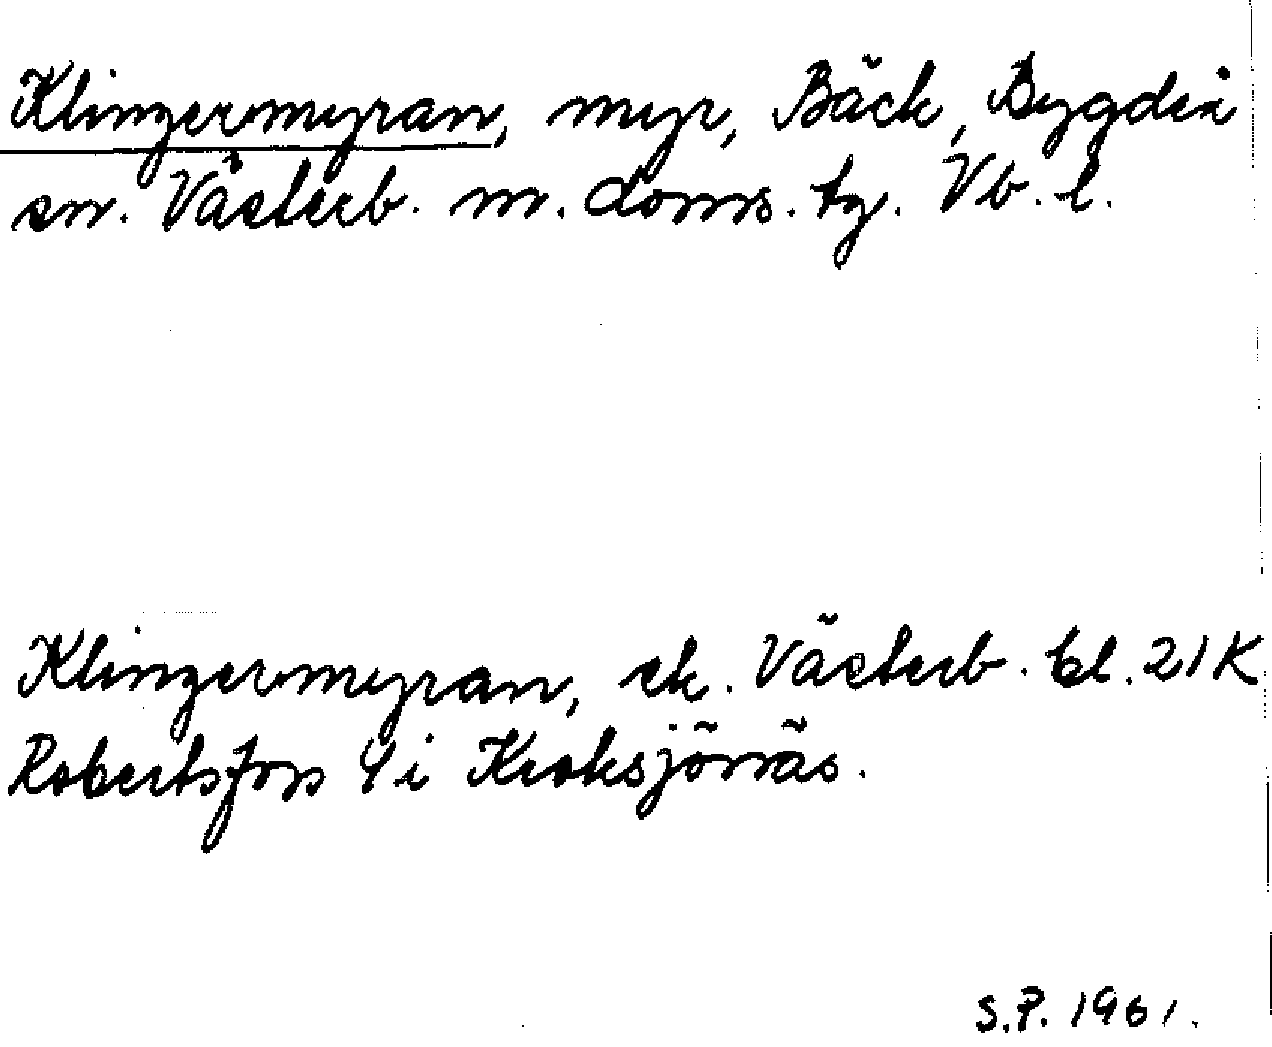 Klingermyran, myr, Bäck, Bygdeå
sn. Västerb. m. doms. tg. Vb. l.
Klingermyran, ek. Västerb. bl. 21K
Robertsfors 4 i Kroksjönäs.
S.P. 1961.